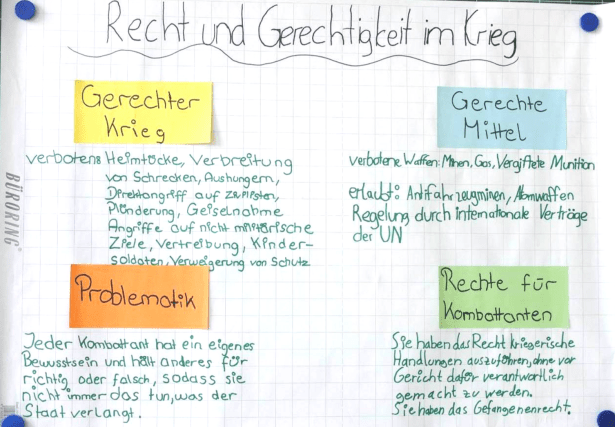 Recht und Gerechtigkeit im Krieg
Gerechter
Krieg
verboten: Heimtücke, Verbreitung
von Schrecken, Aushungern,
Direktangriff auf Zivilisten,
Plünderung, Geiselnahme
Angriffe auf nicht militärische
Ziele, Vertreibung, Kinder-
soldaten, Verweigerung von Schutz
Gerechte
Mittel
verbotene Waffen: Minen, Gas, Vergiftete Munition
erlaubt: Antifahrzeugminen, Atomwaffen
Regelung durch internationale Verträge
der UN
Problematik
Jeder Kombattant hat ein eigenes
Bewusstsein und hält anderes für
richtig oder falsch, sodass sie
nicht immer das tun, was der
Staat verlangt.
Rechte für
Kombattanten
Sie haben das Recht kriegerische
Handlungen auszuführen, ohne vor
Gericht dafür verantwortlich
gemacht zu werden.
Sie haben das Gefangenenrecht.
BÜRORING